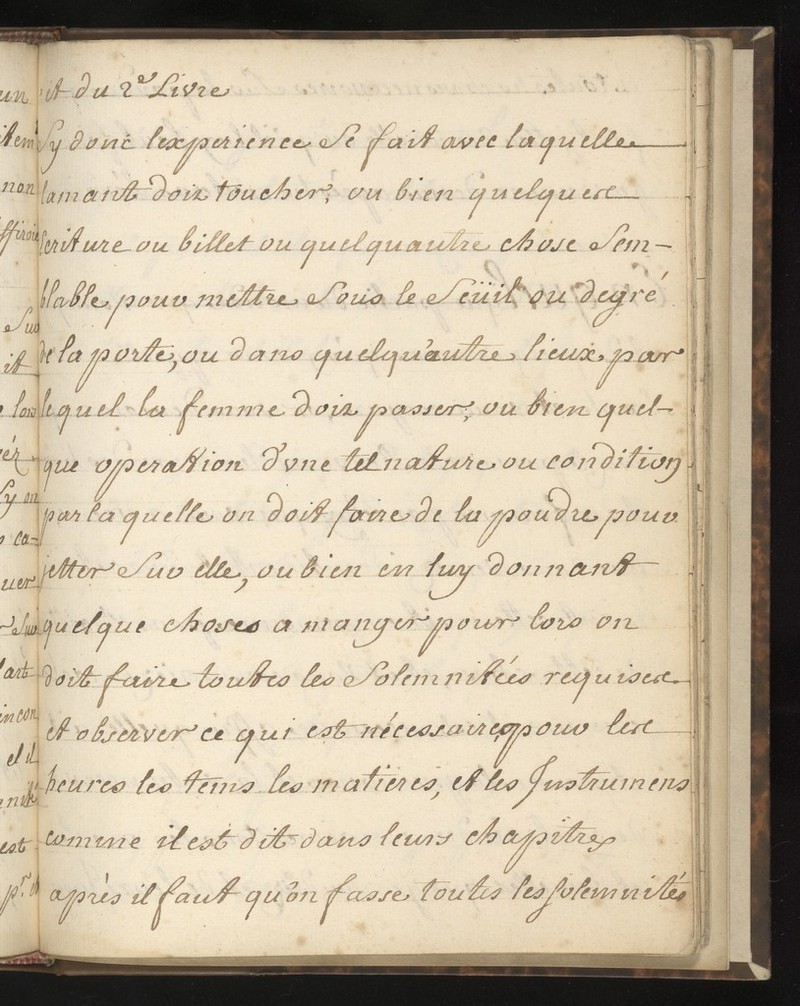 it du 2e Livre
Sy donc lexperience Se fait avec laquelle
lamant doit toucher, ou bien quelques
Ecriture ou billet ou quelquautre chose Sem-
blable pour mettre Sous le Seüil ou degré
de la porte, ou dans quelqu'autre lieux par
lequel la femme doit passer, ou bien quel-
que operation d'vne tel nature ou condition
par la quelle on doit faire de la poudre pour
jetter Sur elle, ou bien en luy donnant
quelque choses a manger pour lors on
doit faire toutes les Solemnitées requises
et observer ce qui est nécessaire pour les
heures les tems les matieres, et les Instrumens
comme il est dit dans leurs chapitres
après il faut qu'on fasse toutes les solemnités